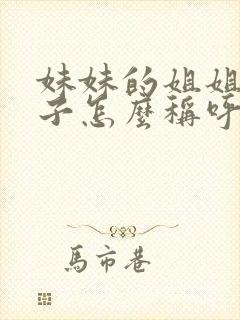 妹妹的姐姐
子怎麼稱呼
馬市巷